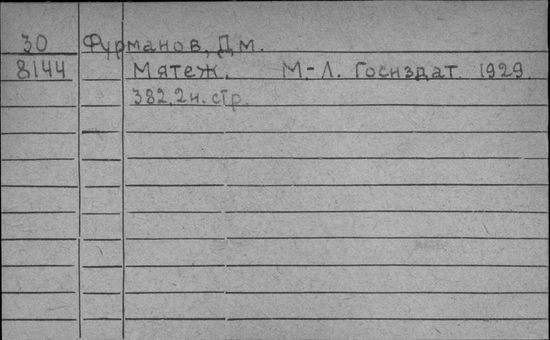 30 Фурманов, Дм.
8144 Мятеж. М-Л. Госиздат. 1929.
382, 2н. стр.